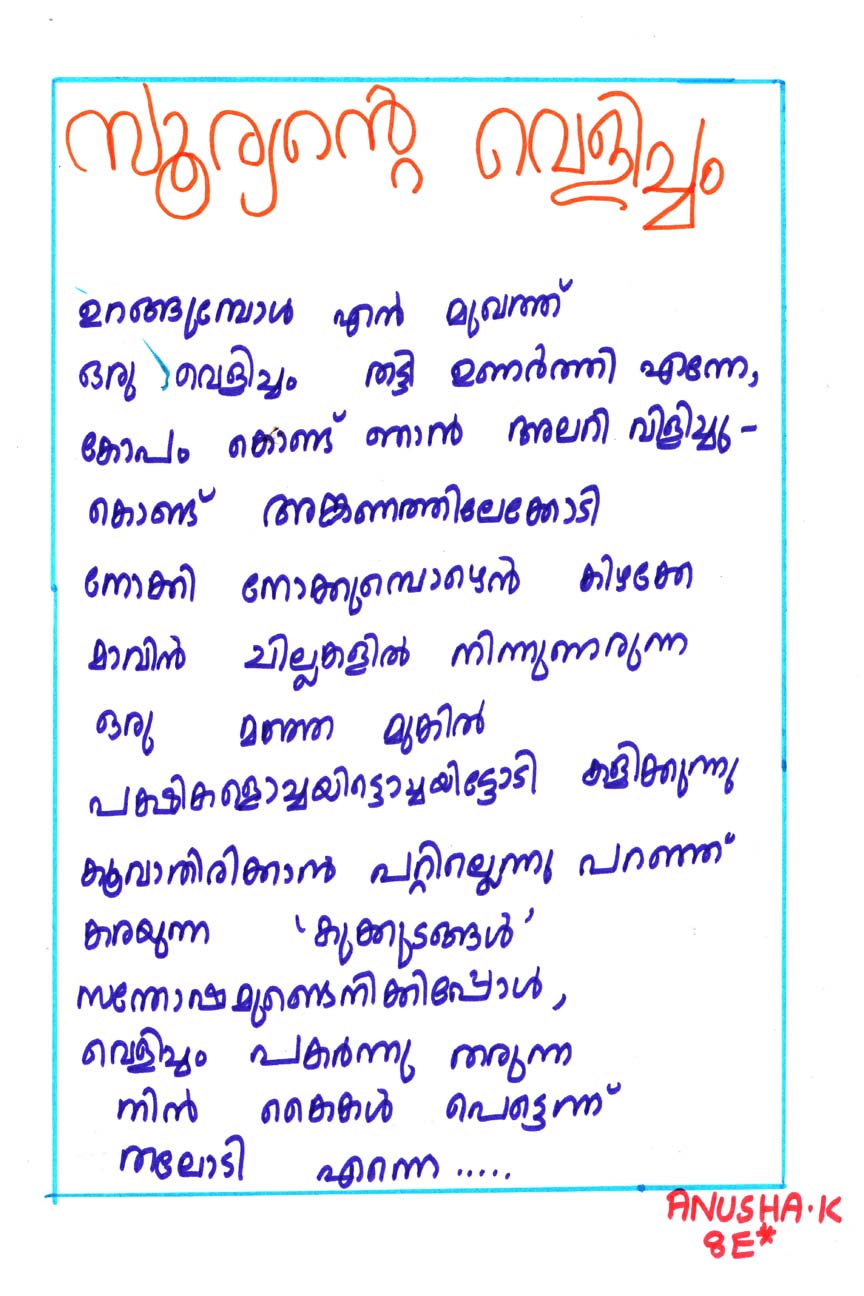 സൂര്യന്റെ വെളിച്ചം
ഉറങ്ങുമ്പോൾ എൻ മുഖത്ത്
ഒരു വെളിച്ചം തട്ടി ഉണർത്തി എന്നേ,
കോപം കൊണ്ട് ഞാൻ അലറി വിളിച്ചു -
കൊണ്ട് അങ്കണത്തിലേക്കോടി
നോക്കി നോക്കുമ്പൊഴെൻ കിഴക്കേ
മാവിൻ ചില്ലകളിൽ നിന്നുണരുന്ന
ഒരു മഞ്ഞ മുകിൽ
പക്ഷികളൊച്ചയിട്ടൊച്ചയിട്ടോടി കളിക്കുന്നു
കൂവാതിരിക്കാൻ പറ്റില്ലെന്നു പറഞ്ഞ്
കരയുന്ന 'കുക്കുടങ്ങൾ'
സന്തോഷമുണ്ടെനിക്കിപ്പോൾ,
വെളിച്ചം പകർന്നു തരുന്ന
നിൻ കൈകൾ പെട്ടെന്ന്
തലോടി എന്നെ .....
ANUSHA.K
8E*